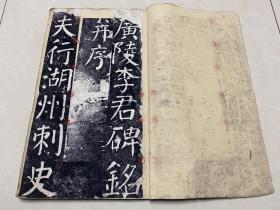 廣陵李君碑銘
并序
夫行湖州刺史